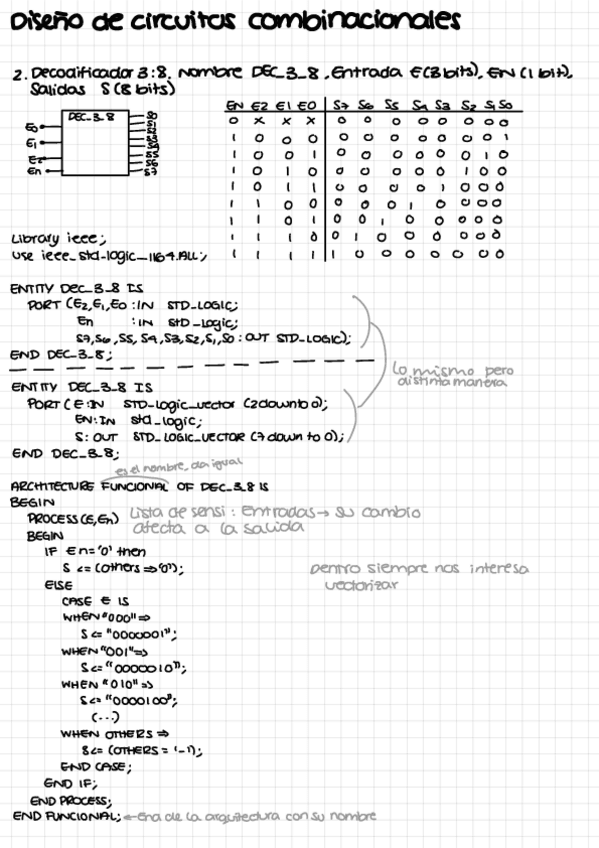 Diseño de circuitos combinacionales
2. Decodificador 3:8. Nombre DEC_3_8, Entrada E(3 bits), EN (1 bit),
Salidas S(8 bits)
DEC_3_8
E0
E1
E2
En
S0
S1
S2
S3
S4
S5
S6
S7
EN E2 E1 E0 S7 S6 S5 S4 S3 S2 S1 S0
0 x x x 0 0 0 0 0 0 0 0
1 0 0 0 0 0 0 0 0 0 0 1
1 0 0 1 0 0 0 0 0 0 1 0
1 0 1 0 0 0 0 0 0 1 0 0
1 0 1 1 0 0 0 0 1 0 0 0
1 1 0 0 0 0 0 1 0 0 0 0
1 1 0 1 0 0 1 0 0 0 0 0
1 1 1 0 0 1 0 0 0 0 0 0
1 1 1 1 1 0 0 0 0 0 0 0
Library ieee;
Use ieee_std-logic_1164.ALL;
ENTITY DEC_3_8 IS
PORT (E2,E1,E0 : IN STD_LOGIC;
En : IN STD_LOGIC;
S7,S6,S5,S4,S3,S2,S1,S0 : OUT STD_LOGIC);
END DEC_3_8;
Lo mismo pero
distinta manera
ENTITY DEC_3_8 IS
PORT (E:IN STD_Logic_vector (2 downto 0);
EN:IN std_logic;
S: OUT STD_LOGIC_VECTOR (7 down to 0);
END DEC_3_8;
es el nombre, da igual
ARCHITECTURE FUNCIONAL OF DEC_3_8 IS
BEGIN
PROCESS(E,En) Lista de sensi: Entradas → su cambio
afecta a la salida
BEGIN
IF En='0' then
S <= (others => '0');
Dentro siempre nos interesa
vectorizar
ELSE
CASE E IS
WHEN "000" =>
S <= "0000001";
WHEN "001" =>
S <= "0000010";
WHEN "010" =>
S <= "0000100";
(...)
WHEN OTHERS =>
S <= (OTHERS = '-');
END CASE;
END IF;
END PROCESS;
END FUNCIONAL; ← End de la arquitectura con su nombre